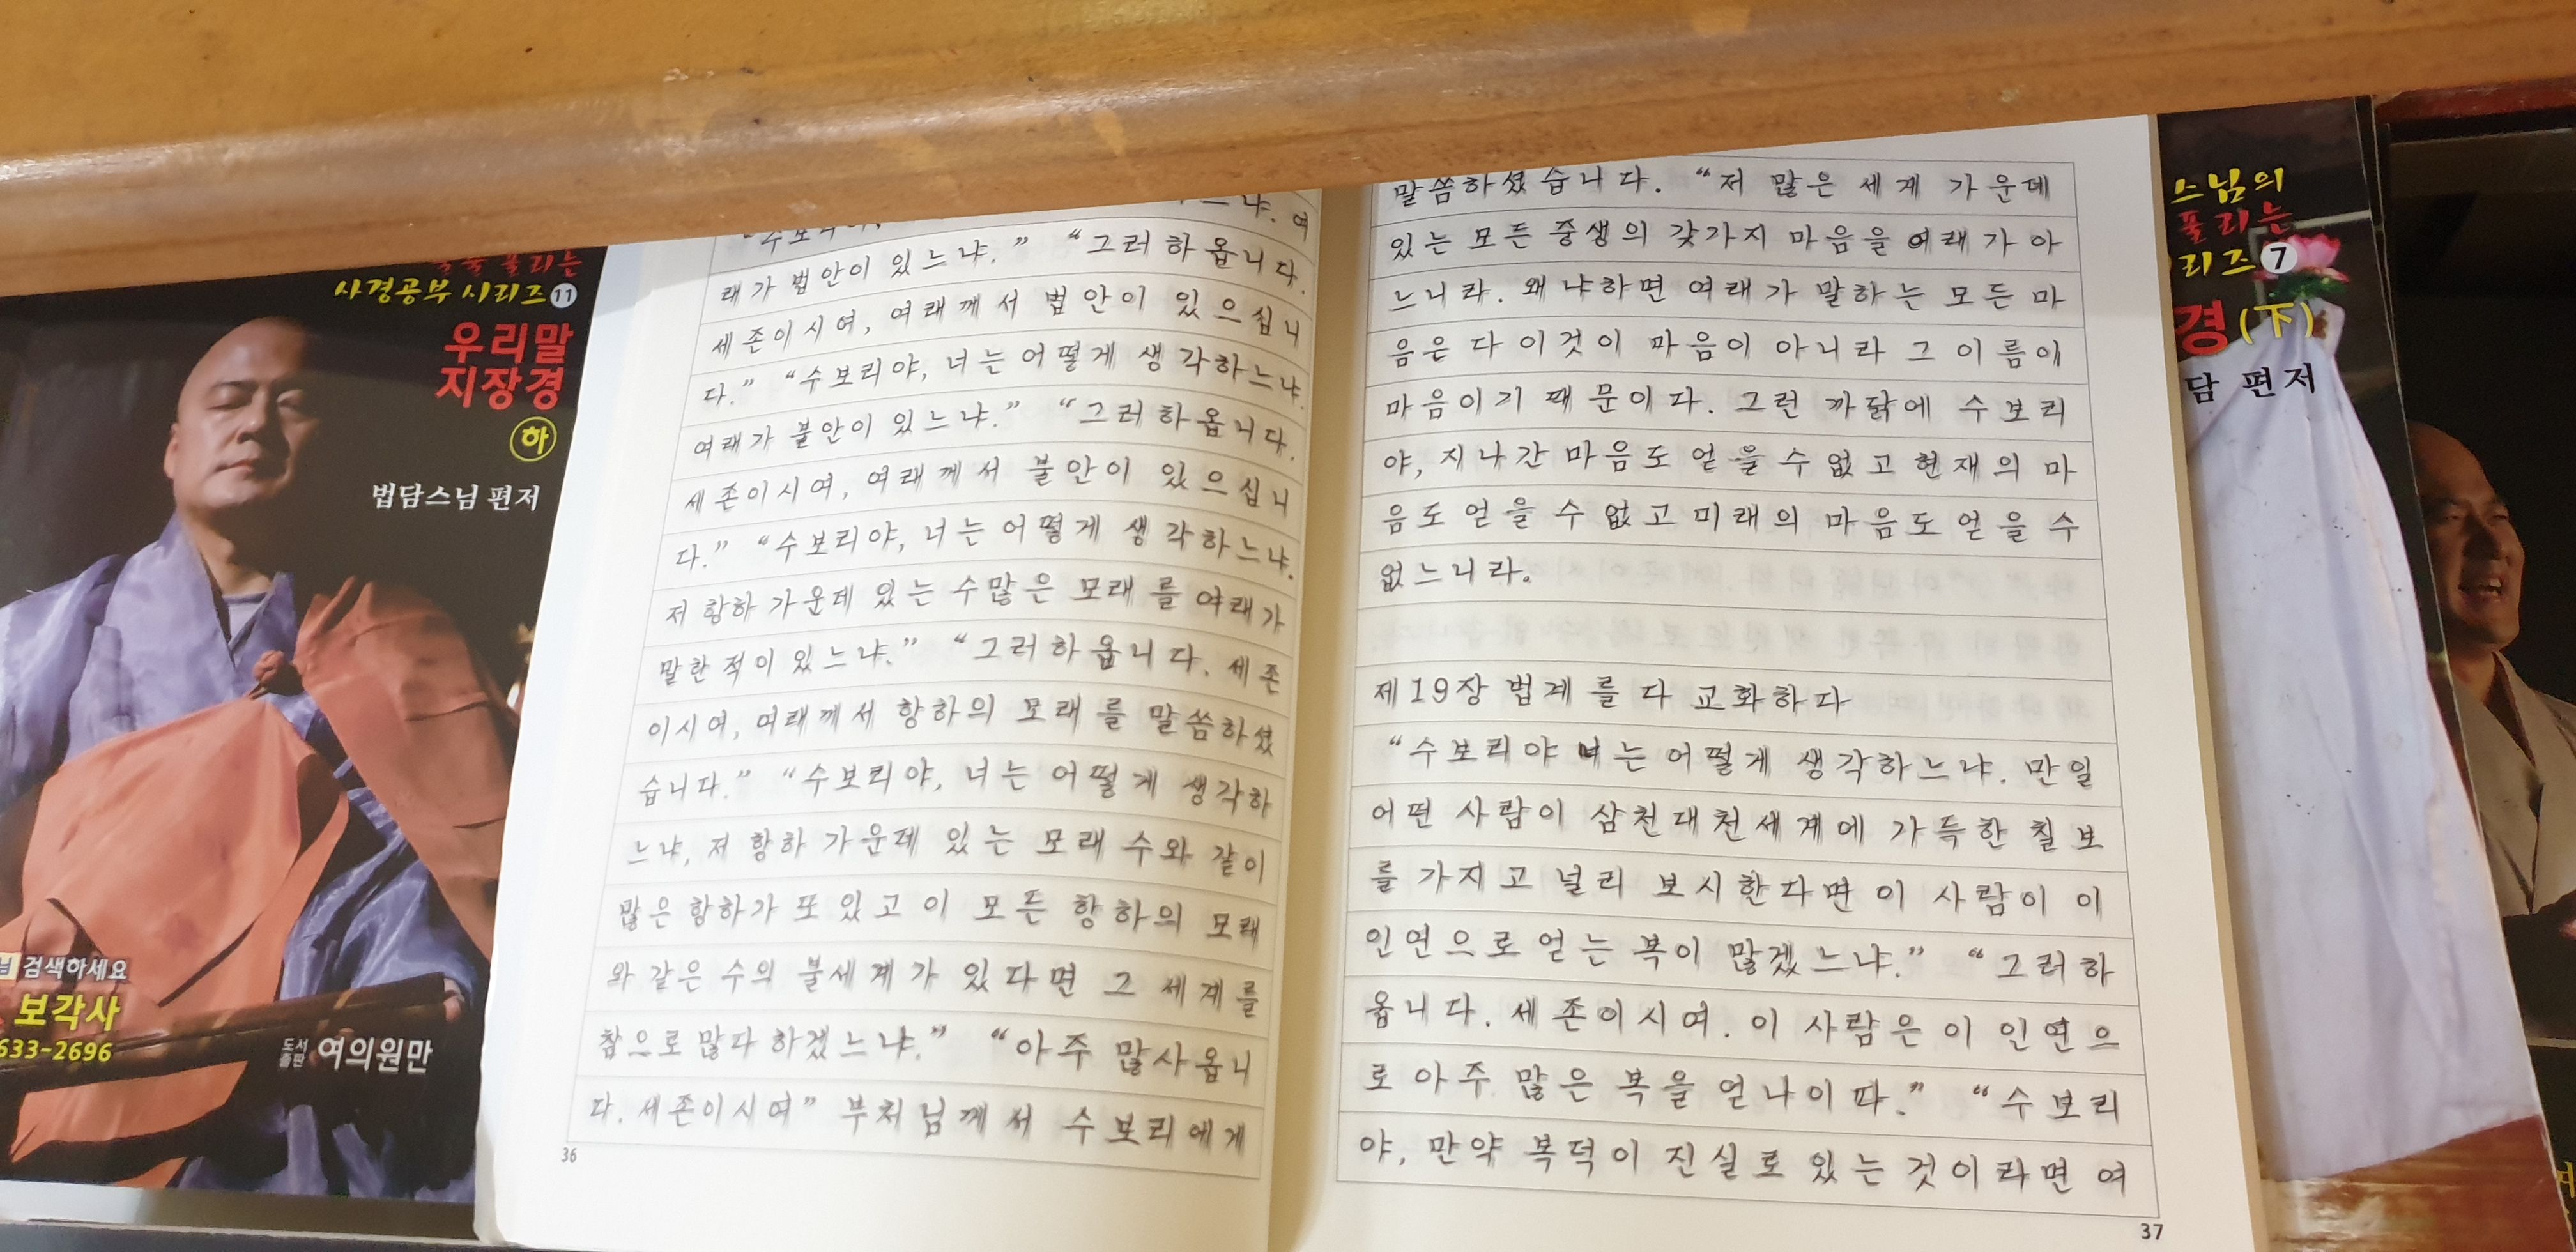 풀리는
사경공부 시리즈 11
우리말
지장경
하
법담스님 편저
검색하세요
보각사
633-2696
도서
출판
여의원만
느냐. 여
래가 법안이 있느냐.” “그러하옵니다.
세존이시여, 여래께서 법안이 있으십니
다.” “수보리야, 너는 어떻게 생각하느냐.
여래가 불안이 있느냐.” “그러하옵니다.
세존이시여, 여래께서 불안이 있으십니
다.” “수보리야, 너는 어떻게 생각하느냐.
저 항하 가운데 있는 수많은 모래를 여래가
말한 적이 있느냐.” “그러하옵니다. 세존
이시여, 여래께서 항하의 모래를 말씀하셨
습니다.” “수보리야, 너는 어떻게 생각하
느냐, 저 항하 가운데 있는 모래 수와 같이
많은 항하가 또 있고 이 모든 항하의 모래
와 같은 수의 불세계가 있다면 그 세계를
참으로 많다 하겠느냐.” “아주 많사옵니
다. 세존이시여” 부처님께서 수보리에게
36
말씀하셨습니다. “저 많은 세계 가운데
있는 모든 중생의 갖가지 마음을 여래가 아
느니라. 왜냐하면 여래가 말하는 모든 마
음은 다 이것이 마음이 아니라 그 이름이
마음이기 때문이다. 그런 까닭에 수보리
야, 지나간 마음도 얻을 수 없고 현재의 마
음도 얻을 수 없고 미래의 마음도 얻을 수
없느니라.
제19장 법계를 다 교화하다
“수보리야 너는 어떻게 생각하느냐. 만일
어떤 사람이 삼천대천세계에 가득한 칠보
를 가지고 널리 보시한다면 이 사람이 이
인연으로 얻는 복이 많겠느냐.” “그러하
옵니다. 세존이시여. 이 사람은 이 인연으
로 아주 많은 복을 얻나이다.” “수보리
야, 만약 복덕이 진실로 있는 것이라면 여
37
스님의
풀리는
리즈 7
경(下)
담 편저